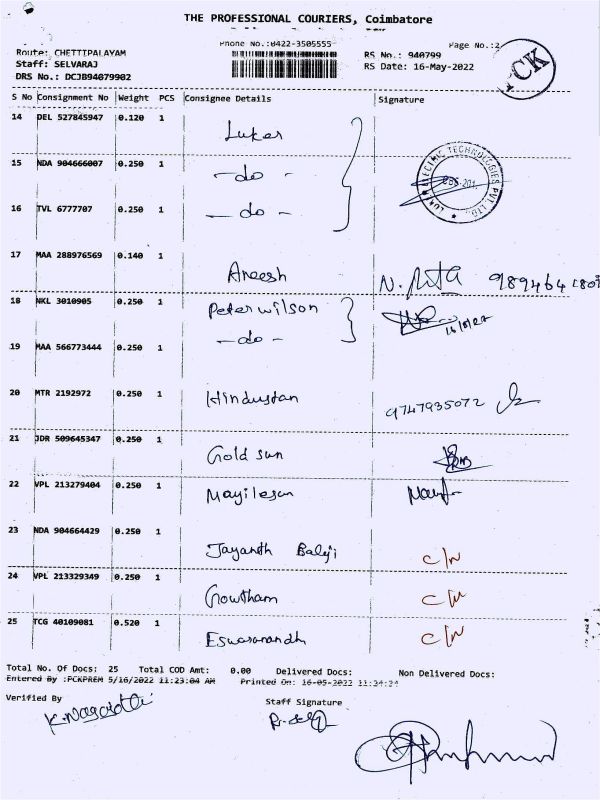 THE PROFESSIONAL COURIERS, Coimbatore
Phone No.:0422-3505555
Page No.:2
PCK
Route: CHETTIPALAYAM
Staff: SELVARAJ
DRS No.: DCJB94079902
RS No.: 940799
RS Date: 16-May-2022
S No Consignment No Weight PCS Consignee Details Signature
14 DEL 527845947 0.120 1 Lukas
15 NDA 904666007 0.250 1 -do-
ELECTRIC TECHNOLOGIES PVT. LTD.
16 TVL 6777707 0.250 1 -do-
17 MAA 288976569 0.140 1 Aneesh
18 NKL 3010905 0.250 1 Peter wilson 16/5/22
19 MAA 566773444 0.250 1 -do-
20 MTR 2192972 0.250 1 Hindustan 9747935072
21 JDR 509645347 0.250 1 Gold sun
22 VPL 213279404 0.250 1 Mayilesan
23 NDA 904664429 0.250 1 Jayanth Balaji C/N
24 VPL 213329349 0.250 1 Gowtham C/N
25 TCG 40109081 0.520 1 Eswaranandh C/N
Total No. Of Docs: 25 Total COD Amt: 0.00 Delivered Docs: Non Delivered Docs:
Entered By :PCKPREM 5/16/2022 11:23:04 AM Printed On: 16-05-2022 11:34:24
Verified By Staff Signature